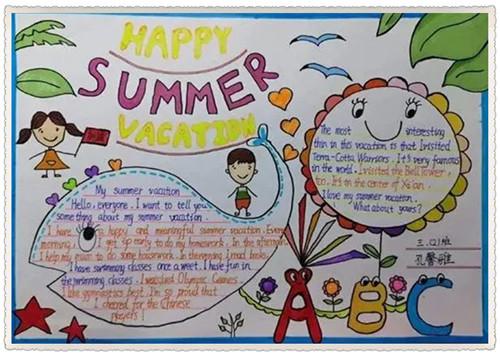 HAPPY
SUMMER
VACATION
My summer vacation
Hello, everyone. I want to tell you
something about my summer vacation.
I have a happy and meaningful summer vacation. Every
morning, I get up early to do my homework. In the afternoon,
I help my mum to do some housework. In the evening, I read books.
I have swimming classes once a week. I have fun in
the swimming classes. I watched Olympic Games.
I like gymnastics best. I'm so proud that
I cheered for the Chinese
players!
The most interesting
thin in this vacation is that I visited
Terra-Cotta Warriors. It's very famous
in the world. I visited the Bell Tower,
too. It's in the center of Xi'an.
I love my summer vacation.
What about yours?
三.(2)班
孔馨雅
A B C